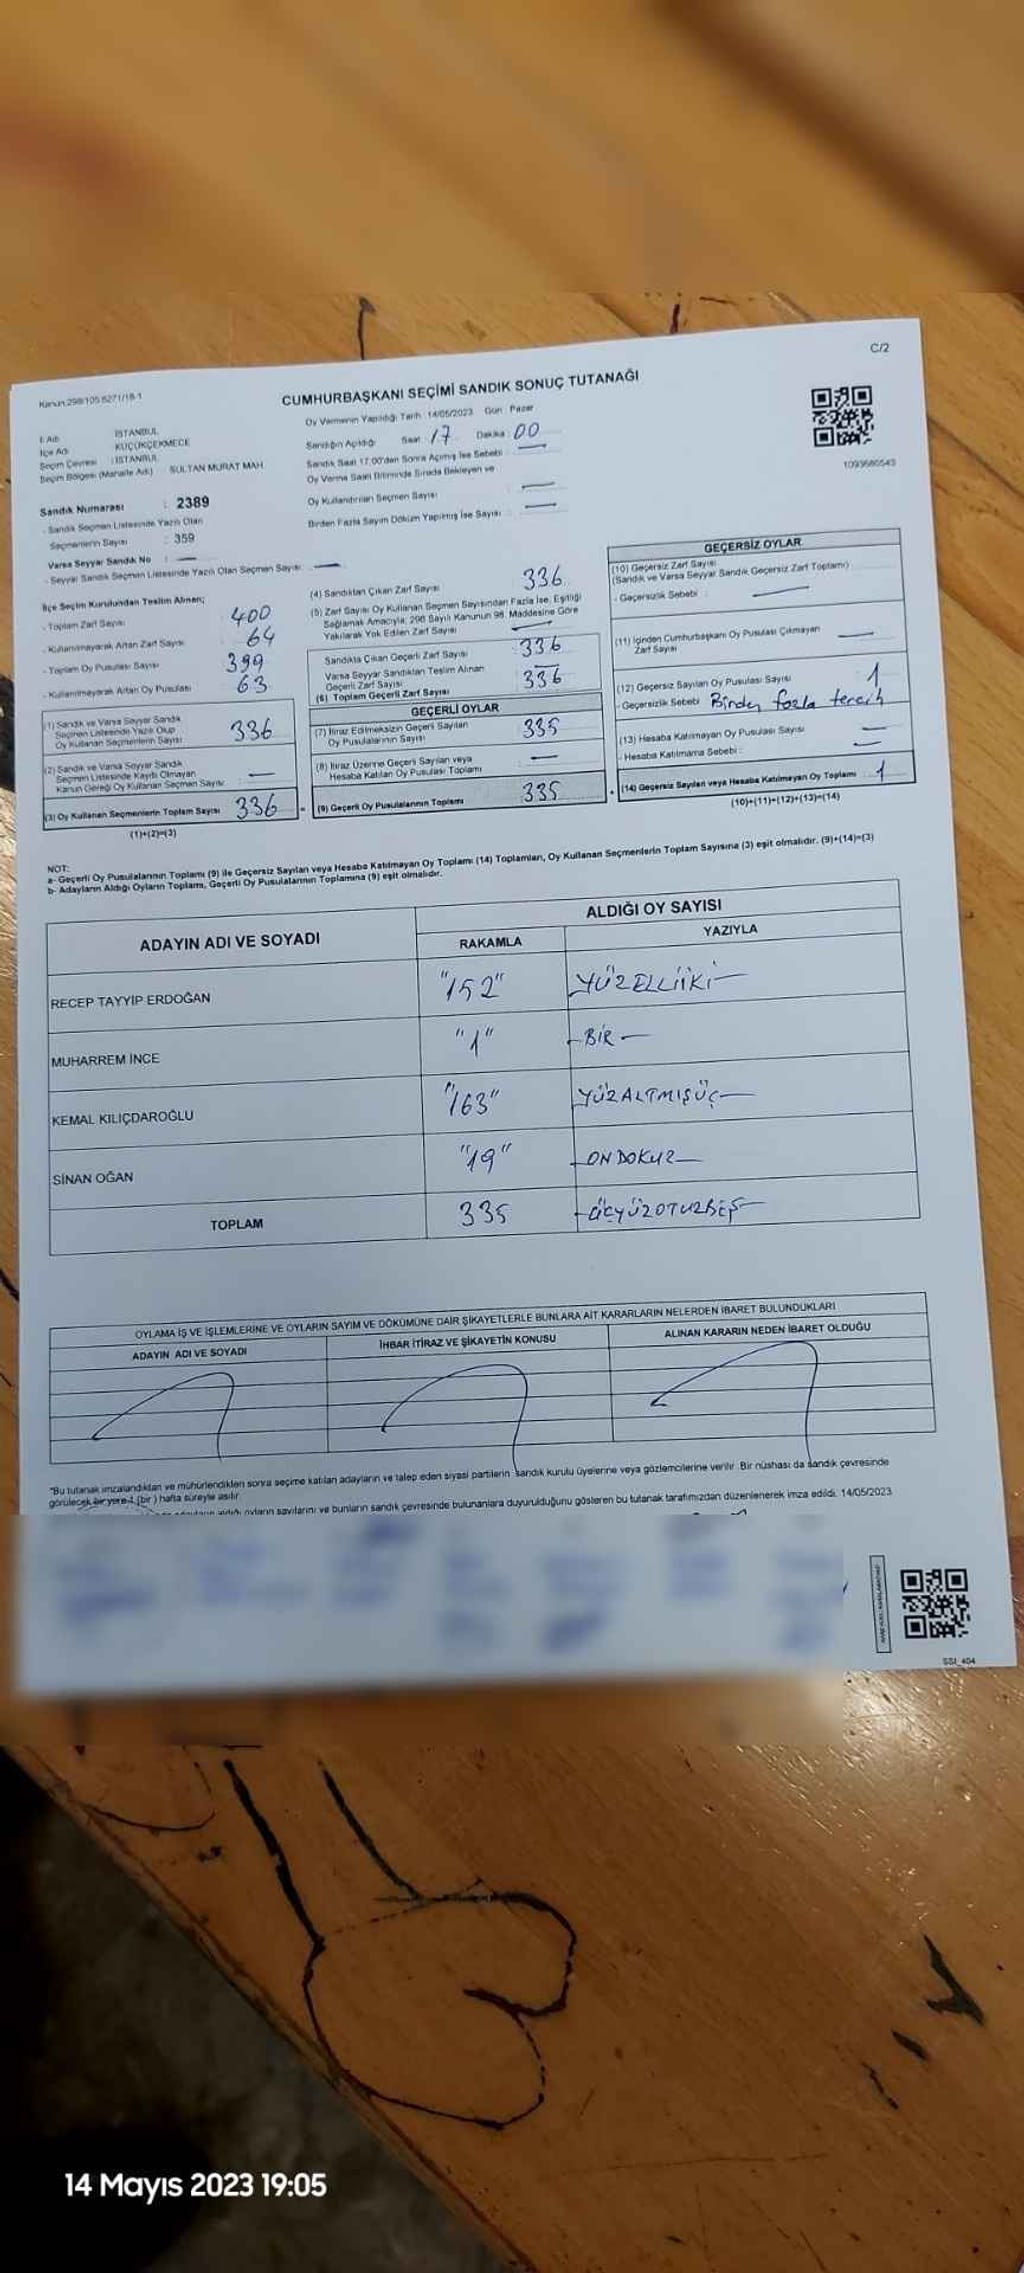 C/2
Kanun:298/105 6271/18-1
CUMHURBAŞKANI SEÇİMİ SANDIK SONUÇ TUTANAĞI
1093680543
İl Adı : İSTANBUL
İlçe Adı : KÜÇÜKÇEKMECE
Seçim Çevresi : İSTANBUL
Seçim Bölgesi (Mahalle Adı) : SULTAN MURAT MAH.
Sandık Numarası : 2389
- Sandık Seçmen Listesinde Yazılı Olan
Seçmenlerin Sayısı : 359
Varsa Seyyar Sandık No : —
- Seyyar Sandık Seçmen Listesinde Yazılı Olan Seçmen Sayısı : —
Oy Vermenin Yapıldığı Tarih : 14/05/2023 Gün : Pazar
Sandığın Açıldığı Saat : 17 Dakika : 00
Sandık Saat 17.00'den Sonra Açılmış İse Sebebi : —
Oy Verme Saati Bitiminde Sırada Bekleyen ve
Oy Kullandırılan Seçmen Sayısı : —
Birden Fazla Sayım Döküm Yapılmış İse Sayısı : —
İlçe Seçim Kurulundan Teslim Alınan;
- Toplam Zarf Sayısı : 400
- Kullanılmayarak Artan Zarf Sayısı : 64
- Toplam Oy Pusulası Sayısı : 399
- Kullanılmayarak Artan Oy Pusulası : 63
(1) Sandık ve Varsa Seyyar Sandık
Seçmen Listesinde Yazılı Olup
Oy Kullanan Seçmenlerin Sayısı : 336
(2) Sandık ve Varsa Seyyar Sandık
Seçmen Listesinde Kayıtlı Olmayan
Kanun Gereği Oy Kullanan Seçmen Sayısı : —
(3) Oy Kullanan Seçmenlerin Toplam Sayısı : 336
(1)+(2)=(3)
(4) Sandıktan Çıkan Zarf Sayısı : 336
(5) Zarf Sayısı Oy Kullanan Seçmen Sayısından Fazla İse, Eşitliği
Sağlamak Amacıyla; 298 Sayılı Kanunun 98. Maddesine Göre
Yakılarak Yok Edilen Zarf Sayısı : —
Sandıkta Çıkan Geçerli Zarf Sayısı : 336
Varsa Seyyar Sandıktan Teslim Alınan
Geçerli Zarf Sayısı : —
(6) Toplam Geçerli Zarf Sayısı : 336
GEÇERLİ OYLAR
(7) İtiraz Edilmeksizin Geçerli Sayılan
Oy Pusulalarının Sayısı : 335
(8) İtiraz Üzerine Geçerli Sayılan veya
Hesaba Katılan Oy Pusulası Toplamı : —
(9) Geçerli Oy Pusulalarının Toplamı : 335
GEÇERSİZ OYLAR
(10) Geçersiz Zarf Sayısı
(Sandık ve Varsa Seyyar Sandık Geçersiz Zarf Toplamı)
- Geçersizlik Sebebi : —
(11) İçinden Cumhurbaşkanı Oy Pusulası Çıkmayan
Zarf Sayısı : —
(12) Geçersiz Sayılan Oy Pusulası Sayısı : 1
- Geçersizlik Sebebi : Birden fazla tercih
(13) Hesaba Katılmayan Oy Pusulası Sayısı : —
- Hesaba Katılmama Sebebi : —
(14) Geçersiz Sayılan veya Hesaba Katılmayan Oy Toplamı : 1
(10)+(11)+(12)+(13)=(14)
NOT:
a- Geçerli Oy Pusulalarının Toplamı (9) ile Geçersiz Sayılan veya Hesaba Katılmayan Oy Toplamı (14) Toplamları, Oy Kullanan Seçmenlerin Toplam Sayısına (3) eşit olmalıdır. (9)+(14)=(3)
b- Adayların Aldığı Oyların Toplamı, Geçerli Oy Pusulalarının Toplamına (9) eşit olmalıdır.
ADAYIN ADI VE SOYADI
ALDIĞI OY SAYISI
RAKAMLA YAZIYLA
RECEP TAYYİP ERDOĞAN "152" YÜZELLİİKİ
MUHARREM İNCE "1" BİR
KEMAL KILIÇDAROĞLU "163" YÜZALTMIŞÜÇ
SİNAN OĞAN "19" ONDOKUZ
TOPLAM 335 ÜÇYÜZOTUZBEŞ
OYLAMA İŞ VE İŞLEMLERİNE VE OYLARIN SAYIM VE DÖKÜMÜNE DAİR ŞİKAYETLERLE BUNLARA AİT KARARLARIN NELERDEN İBARET BULUNDUKLARI
ADAYIN ADI VE SOYADI İHBAR İTİRAZ VE ŞİKAYETİN KONUSU ALINAN KARARIN NEDEN İBARET OLDUĞU
"Bu tutanak imzalandıktan ve mühürlendikten sonra seçime katılan adayların ve talep eden siyasi partilerin sandık kurulu üyelerine veya gözlemcilerine verilir. Bir nüshası da sandık çevresinde
görülecek bir yere 1 (bir) hafta süreyle asılır.
aldığı oyların sayılarını ve bunların sandık çevresinde bulunanlara duyurulduğunu gösteren bu tutanak tarafımızdan düzenlenerek imza edildi. 14/05/2023
SSI_404
14 Mayıs 2023 19:05